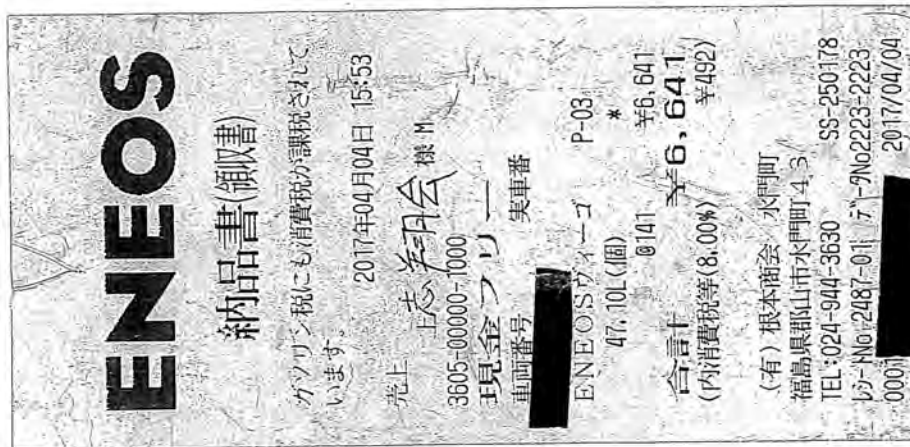 ENEOS
納品書(領収書)
ガソリン税にも消費税が課税されて
います。
2017年04月04日 15:53
売上
志翔会 様 M
3605-00000-1000
現金フリー
車両番号 実車番
ENEOSヴィーゴ P-03
47.10L(個) *
@141 ¥6,641
合計 ¥6,641
(内消費税等(8.00%) ¥492)
(有)根本商会 水門町
福島県郡山市水門町43
TEL:024-944-3630 SS-250178
レシートNo 2487-01 データNo2223-2223
0001 2017/04/04